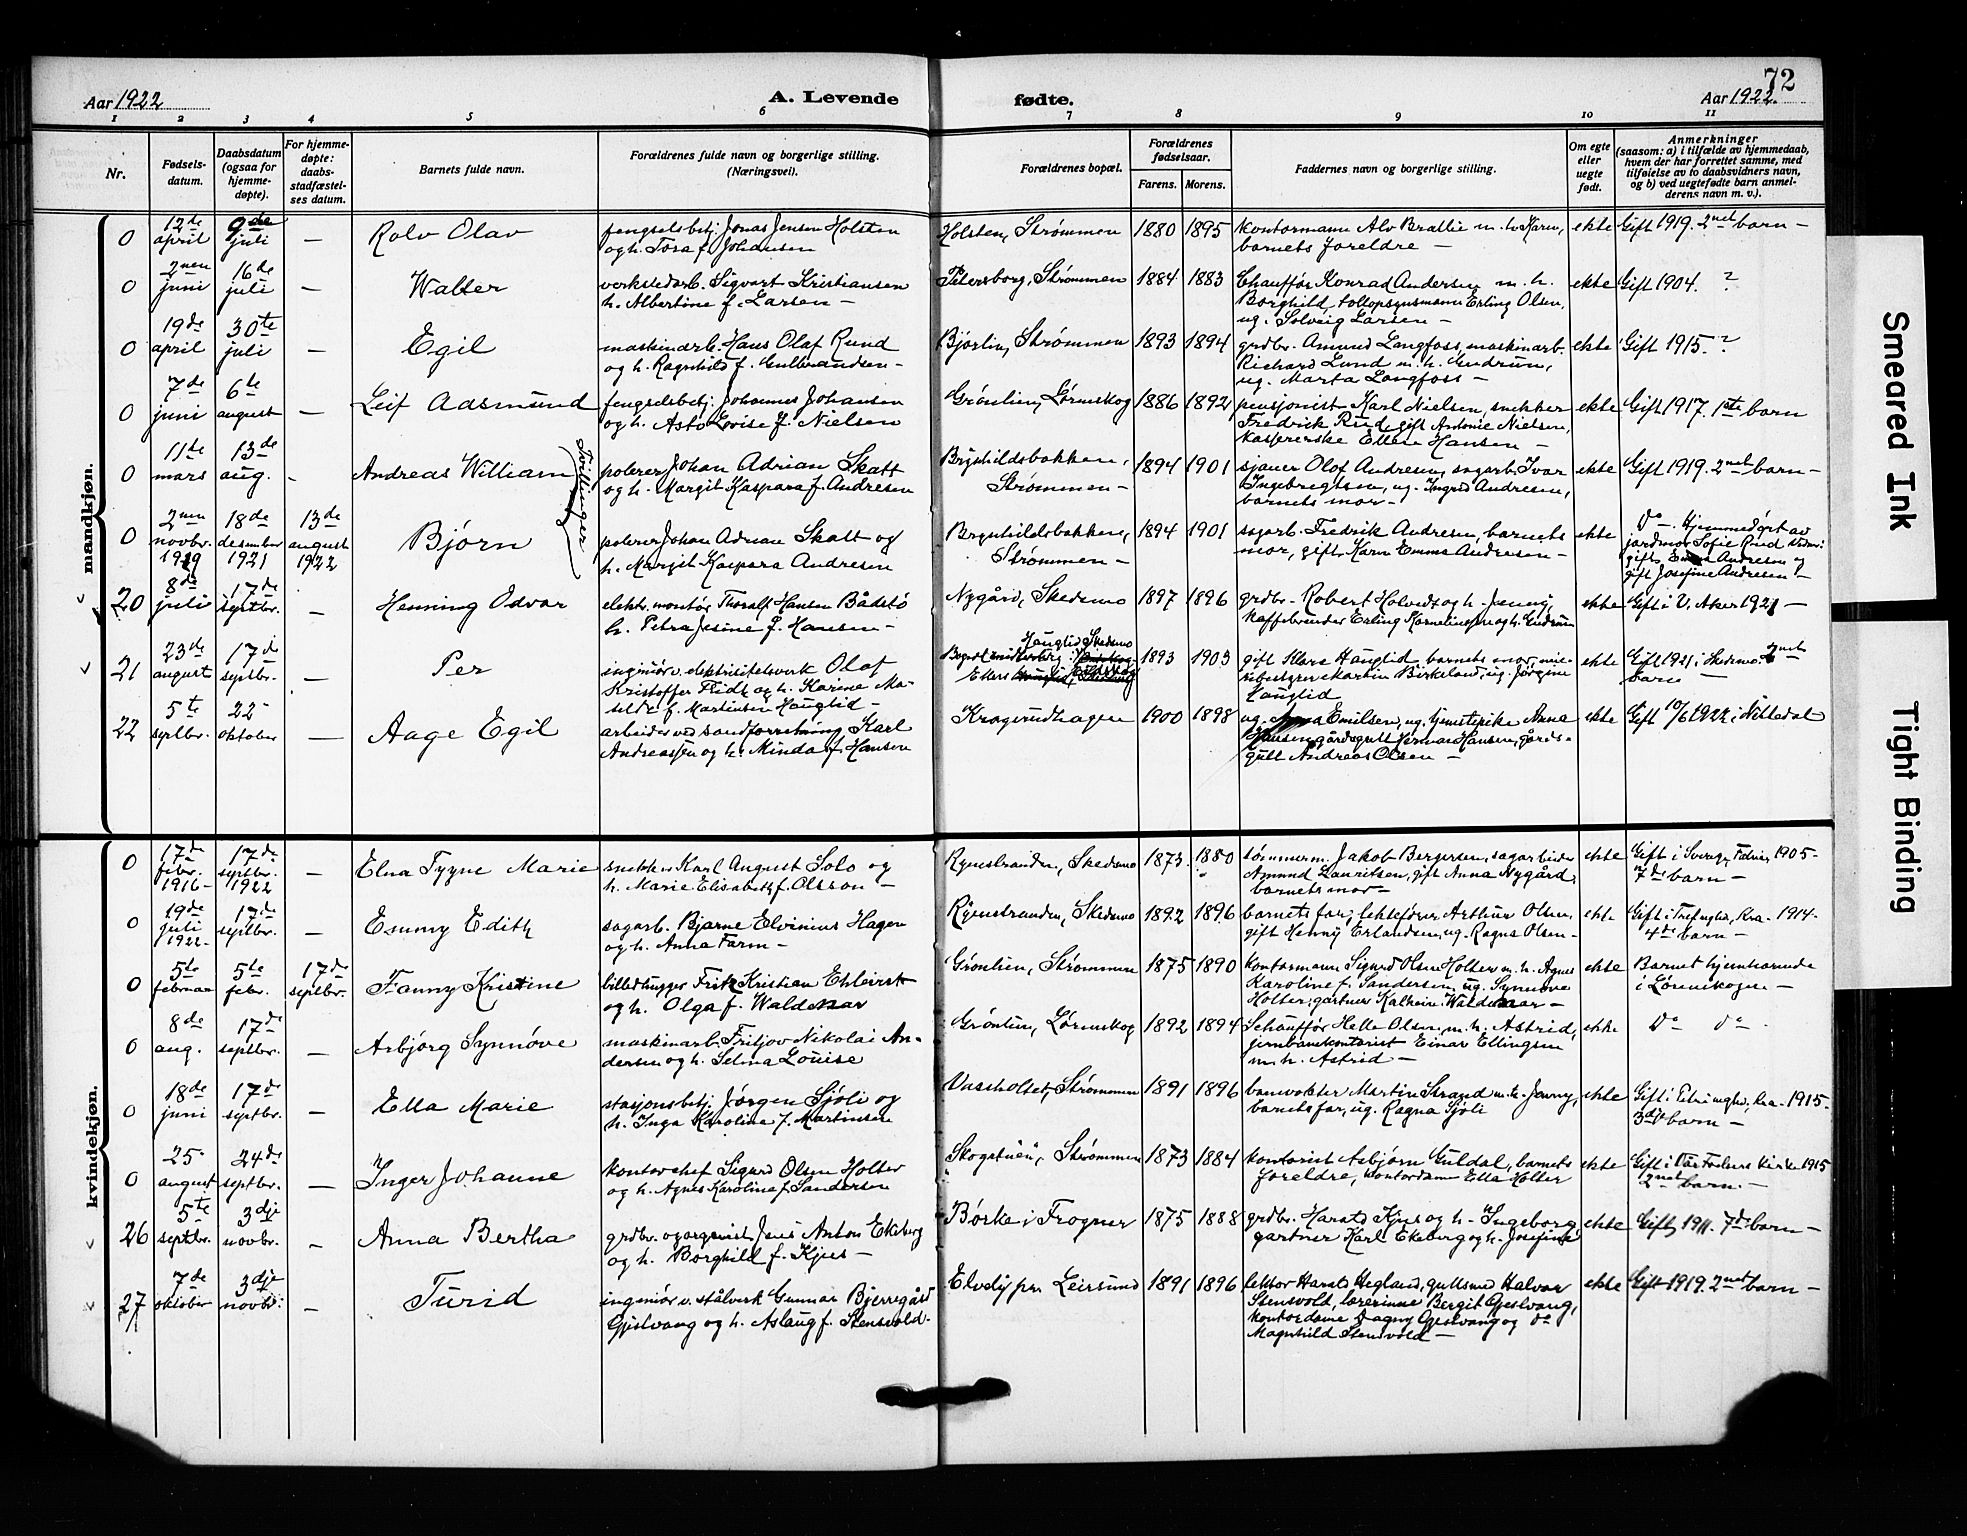 72
Aar 1922
A. Levende
fødte.
Aar 1922.
1 2 3 4 5 6 7 8 9 10 11
Nr.
Fødsels-
datum.
Daabsdatum
(ogsaa for
hjemme-
døpte).
For hjemme-
døpte:
daabs-
stadfæstel-
ses datum.
Barnets fulde navn.
Forældrenes fulde navn og borgerlige stilling.
(Næringsvei).
Forældrenes bopæl.
Forældrenes
fødselsaar.
Farens. Morens.
Faddernes navn og borgerlige stilling.
Om egte
eller
uegte
født.
Anmerkninger
(saasom: a) i tilfælde av hjemmedaab,
hvem der har forrettet samme, med
tilføielse av to daabsvidners navn,
og b) ved uegtefødte barn anmel-
derens navn m. v.).
mandkjøn.
0 12de april 9de juli — Rolv Olav
fengselsbetj. Jonas Jensen Holsten
og h. Tora f. Johansen
Holsten, Strømmen 1880 1895
kontormann Alv Brattlie m. h. Karen,
barnets foreldre —
ekte Gift 1919. 2net barn —
0 2nen juni 16de juli — Walter
verkstedarb. Sigvart Kristiansen
h. Albertine f. Larsen —
Petersborg, Strømmen 1884 1883
Chauffør Konrad Andersen m. h.
Borghild, tollopsynsmann Erling Olsen,
ug. Solveig Larsen —
ekte Gift 1904. ?
0 19de april 30te juli — Egil
maskinarb. Hans Olaf Rund
og h. Ragnhild f. Gulbrandsen —
Bjørlin, Strømmen 1893 1894
grdbr. Amund Langfoss, maskinarb.
Richard Lund m. h. Gudrun,
ug. Marta Langfoss —
ekte Gift 1915. ?
0 7de juni 6te august — Leif Aasmund
fengselsbetj. Johannes Johansen
og h. Asta Lovise f. Nielsen
Grønlien, Lørenskog 1886 1892
pensjonist Karl Nielsen, snekker
Fredrik Rud, gift Antonie Nielsen,
kassererske Ellen Hansen —
ekte Gift 1917. 1ste barn
0 11te mars 13de aug. - Andreas William
Tvillinger
polerer Johan Adrian Skatt
og h. Margit Kaspara f. Andresen
Brynhildsbakken,
Strømmen —
1894 1901
sjauer Olof Andresen, sagarb. Ivar
Ingebregtsen, ug. Ingrid Andresen,
barnets mor —
ekte Gift 1919. 2net barn —
0 2nen novbr. 1919 18de desember 1921 13de august 1922 Bjørn
polerer Johan Adrian Skatt og
h. Margit Kaspara Andresen
Brynhildsbakken,
Strømmen —
1894 1901
sagarb. Fredrik Andresen, barnets
mor, gift Karen Emma Andresen —
ekte Do —. Hjemmedøpt av
jordmor Sofie Rud
gift Emma Andresen og
gift Josefine Andresen —
20 8de juli 17de septbr. — Henning Odvar
elektr. montør Thoralf Hansen Bådstø
h. Petra Jesine f. Hansen —
Nygård, Skedsmo 1897 1896
grdbr. Robert Holvedt og h. Jenny,
kaffebrender Erling Korneliussen og h. Gudrun
ekte Gift i V. Aker 1921 —
21 23de august 17de septbr. — Per
ingeniør v. elektrisitetsverk Olaf
Kristoffer Flidt og h. Karine Ma-
tilde f. Martinsen Hauglid —
Hauglid, Skedsmo
1893 1903
gift Klara Hauglid, barnets mor,
Birkeland, ug. Jørgine
Hauglid
ekte Gift 1921 i Skedsmo. 2net
barn —
22 5te septbr. 22- oktober — Aage Egil
arbeider ved sandforretning Karl
Andreassen og h. Minda f. Hansen
Krogerudhagen 1900 1898
ug. Emilsen, ug. tjenestepike Anna
Hansen, gårdsgutt Herman Hansen, gårds-
gutt Andreas Olsen —
ekte Gift 10/6 1922 i Nittedal
kvindekjøn.
0 17de febr. 1916 — 17de septbr. 1922 — Elna Tyyne Marie
snekker Karl August Solo og
h. Marie Elisabeth f. Olsson —
Ryenstranden, Skedsmo 1873. 1880
tømmerm. Jakob Bergersen, sagarbeider
Amund Lauritsen, gift Anna Nygård,
barnets mor —
ekte Gift i Sverige, Falun, 1905 -
7de barn —
0 19de juli 1922 - 17de septbr. — Emmy Edith
sagarb. Bjarne Elvinius Hagen
og h. Anna Farm —
Ryenstranden, Skedsmo 1892 1896
barnets far, fektefører Arthur Olsen,
gift Henny Erlandsen, ug. Ragna Olsen —
ekte Gift i Trefoldighet, Kra. 1914.
4de barn —
0 5te februar 5te febr. 17de septbr. Fanny Kristine
billedhugger Fritz Kristian
og h. Olga f. Waldemar
Grønlien, Strømmen 1875 1890
kontormann Sigurd Olsen Holter m. h. Agnes
Karoline f. Sandersen, ug. Synnøve
Holter, gartner Waldemar —
ekte Barnet hjemhørende
i Lørenskogen —
0 8de aug. 17de septbr. — Asbjørg Synnøve
maskinarb. Fritjov Nikolai An-
dersen og h. Selma Louise
Grønlien, Lørenskog 1892 1894
Schauffør Helle Olsen m. h. Astrid,
jernbanekontorist Einar Ellingsen
m. h. Astrid —
ekte Do do
0 18de juni 17de septbr. — Ella Marie
stasjonsbetj. Jørgen Sjøli og
h. Inga Karoline f. Martinsen
Vassholtet, Strømmen 1891 1896
banevokter Martin Strand m. h. Jenny,
barnets far, ug. Ragna Sjøli
ekte Kra. 1915.
3dje barn —
0 25- august 24de septbr. — Inger Johanne
kontorchef Sigurd Olsen Holter
og h. Agnes Karoline f. Sandersen
Skogstuen, Strømmen 1873 1884
kontorist Asbjørn Guldal, barnets
foreldre, kontordame Ella Holter
ekte Gift i Vår Frelsers kirke 1915
2net barn. —
26 5te septbr. 3dje novbr. — Anna Bertha
grdbr. og organist Jens Anton Ekeberg
og h. Borghild f. Kjus —
Børke i Frogner 1875 1888
grdbr. Harald Kjus og h. Ingeborg
gartner Karl Ekeberg og h. Josefine
ekte Gift 1911. 7de barn —
27 7de oktober 3dje novbr. — Turid
ingeniør v. stålverk Gunnar Bjerregård
Gjeslvang og h. Aslaug f. Stensvold.
Elvely pr. Leirsund 1891 1896
lektor Harald Hegland, gullsmed Halvor
Stensvold, lærerinne Bergit Gjeslvang,
kontordame Dagny Gjeslvang og do
Magnhild Stensvold —
ekte Gift 1919. 2net barn —
Smeared Ink
Tight Binding